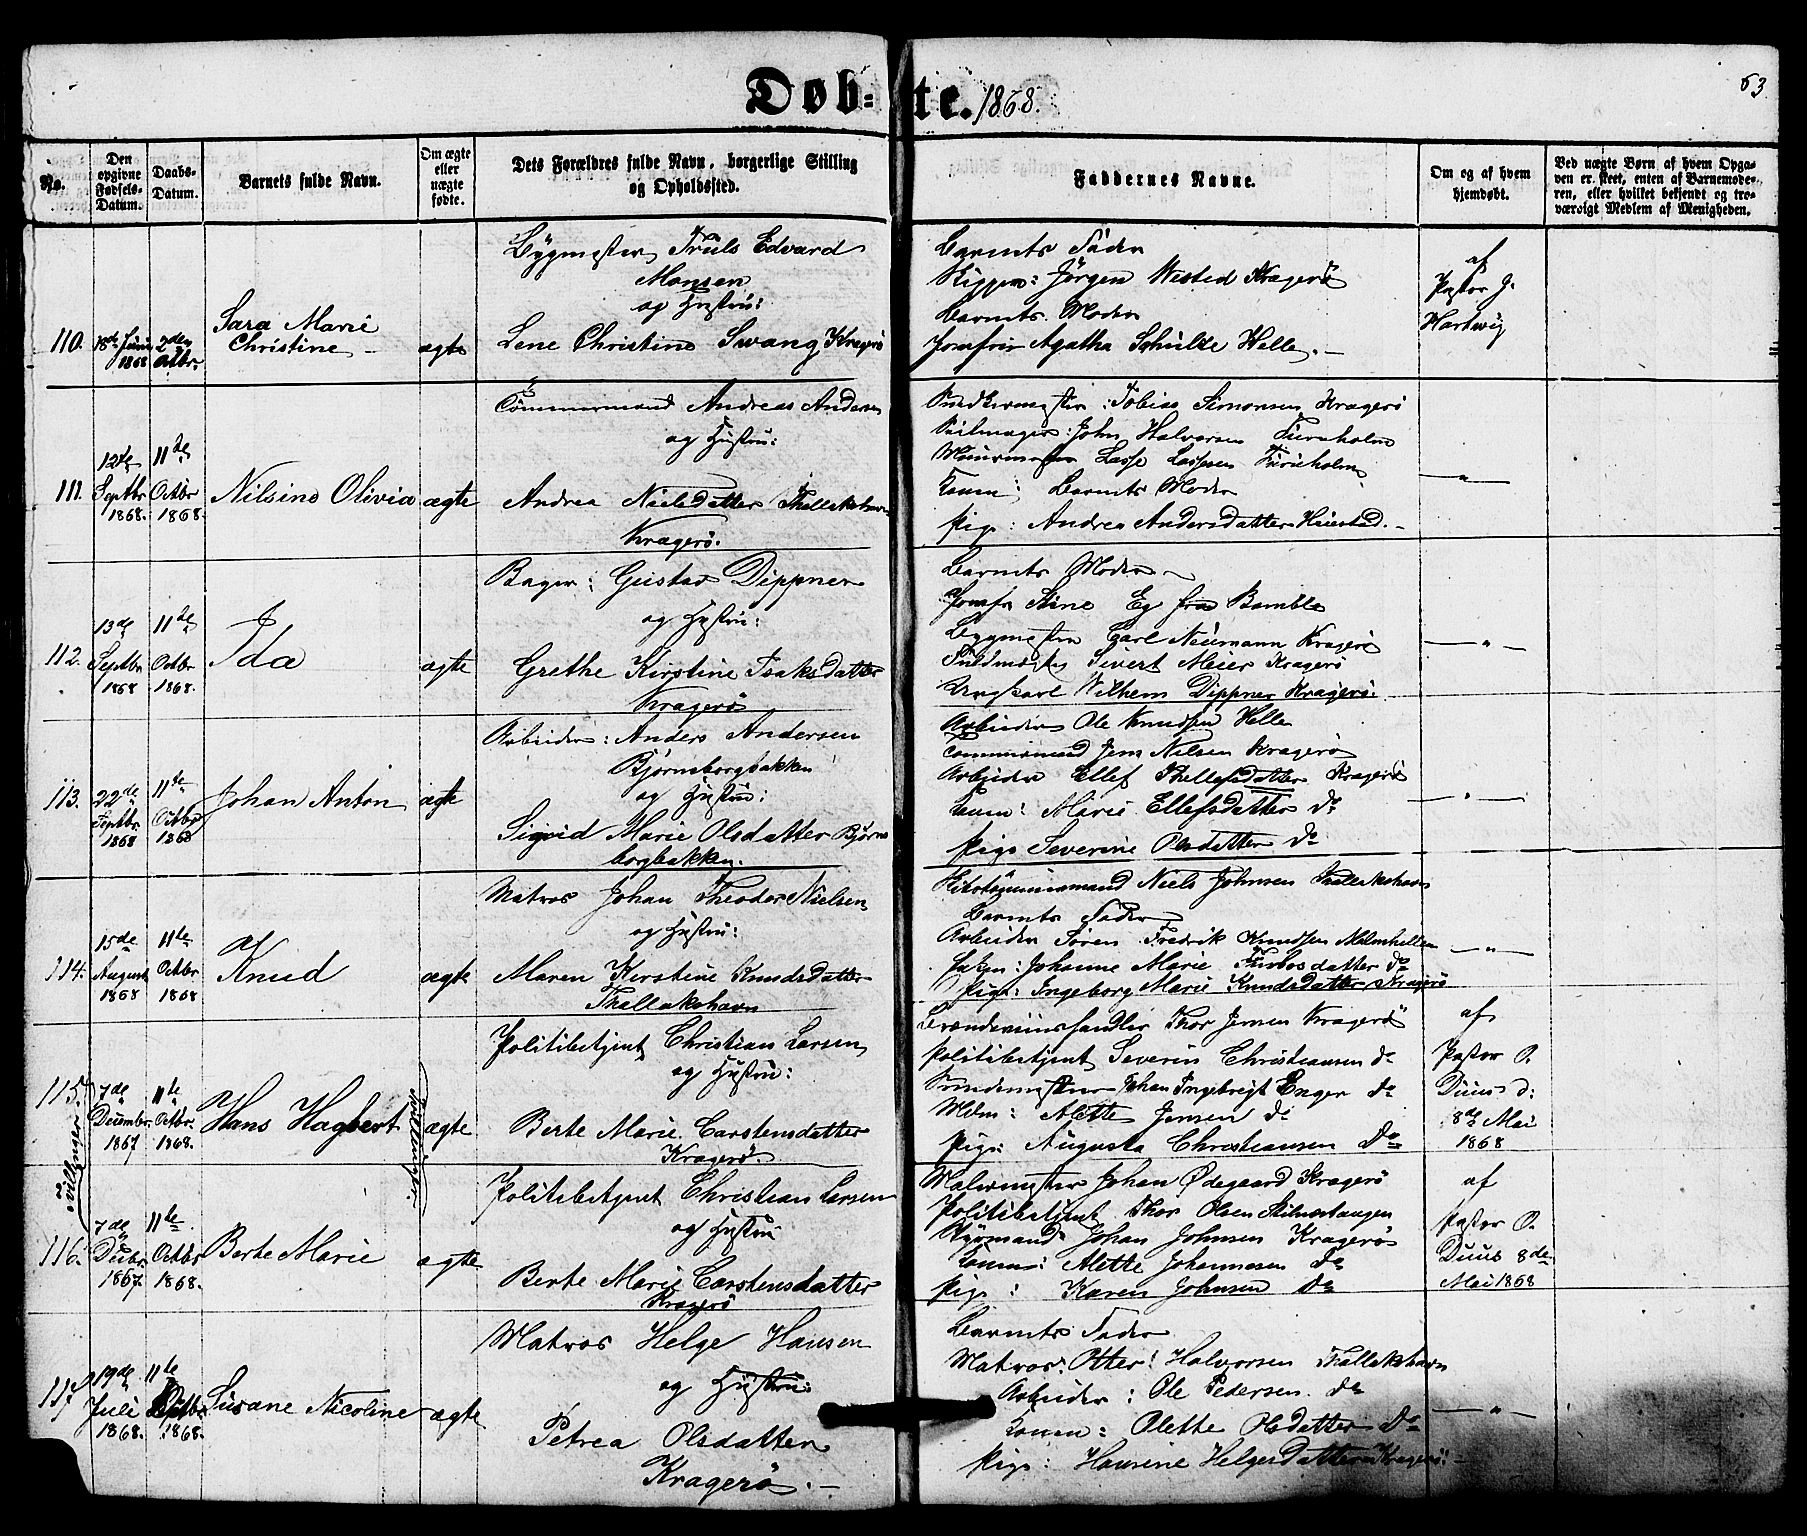 Døbte. 1868.
63
No.
Den opgivne Fødsels-Datum.
Daabs-Datum.
Barnets fulde Navn.
Om ægte eller uægte fødte.
Dets Forældres fulde Navn, borgerlige Stilling og Opholdssted.
Faddernes Navne.
Om og af hvem hjemdøbt.
Ved uægte Børn af hvem Opgaven er skeet, enten af Barnemoderen, eller hvilket bekjendt og troværdigt Medlem af Menigheden.
110.
18de Juni 1868
2den Octbr.
Sara Marie
Christine
ægte
Bygmester Truls Edvard
Monsen
og Hustru:
Lene Christine Svang Kragerö
Barnets Fader
Skipper: Jörgen Wested Kragerö
Barnets Moder
Jomfru Agatha Schulze Helle.
af
Pastor J.
Hartvig
111.
12te Septbr 1868.
11te Octbr 1868.
Nilsine Olivia
ægte
Tömmermand Andreas Andersen
og Hustru:
Andrea Nielsdatter Thallakshavn
Kragerö.
Tobias Simonsen Kragerö
Seilmager: John Halvorsen Furuholm
Muurmester Lasse Lassesen Furuholm
Konen: Barnets Moder
Pige: Andrea Andersdatter
— " —
112.
13de Septbr 1868
11te Octbr 1868.
Ida
ægte
Bager: Gustav Dippner
og Hustru:
Grethe Kirstine Isaksdatter
Kragerö
Barnets Moder
Jomfr Stine Eg fra Bamble
Bygmester Carl Neumann Kragerö
Sivert Meier Kragerö
Ungkarl Wilhem Dippner Kragerö.
— " —
113.
22de Septbr. 1868
11te Octbr 1868
Johan Anton
ægte
Arbeider: Anders Andersen
Björnsborgbakken
og Hustru:
Sigrid Marie Olsdatter Björns
borgbakken.
Arbeider Ole Knudsen Helle
Tömmermand Jens Nilsen Kragerö
Arbeider Ellef Thellefsdatter Kragerö
Konen: Marie Ellefsdatter do
Pige Severine Olsdatter do
— " —
114.
15de August 1868
11te Octbr 1868
Knud
ægte
Matros Johan Theodor Nielsen
og Hustru:
Maren Kirstine Knudsdatter
Thallakshavn
Niels Johnsen Thallakshavn
Barnets Fader
Arbeider Sören Fredrik Knudsen Malmhellen
Johanne Marie do
Pige: Ingeborg Marie Knudsdatter Kragerö
— " —
115.
Tvillinger
7de Decembr. 1867
11te Octbr. 1868.
Hans Hagbert
ægte
Tvillinger.
Politibetjent Christian Larsen
og Hustru:
Berte Marie Carstensdatter
Kragerö.
Brændeviinshandler Thor Jensen Kragerö
Politibetjent Severin Christiansen do
Johan Ingebrigt Enger do
Alette Jensen do
Pige: Augusta Christiansen do
af
Pastor O.
Duus d:
8de Mai
1868
116.
7de Decbr. 1867.
11te Octbr 1868.
Berte Marie
ægte
Politibetjent Christian Larsen
og Hustru
Berte Marie Carstensdatter
Kragerö
Malermester Johan Ødegaard Kragerö
Politibetjent Thor Olsen Stilnestangen
Styrmand Johan Johnsen Kragerö
Konen: Alette Johannesen do
Pige: Karen Johnsen do
af
Pastor O.
Duus 8de
Mai 1868
117
19de Juli 1868.
11te Octbr 1868.
Susane Nicoline
ægte
Matros Helge Hansen
og Hustru:
Petrea Olsdatter
Kragerö.
Barnets Fader
Matros: Otter Halvorsen Thallakshavn
Arbeider: Ole Pedersen do
Konen: Olette Olsdatter do
Pige: Hansine Helgesdatter Kragerö.
— " —